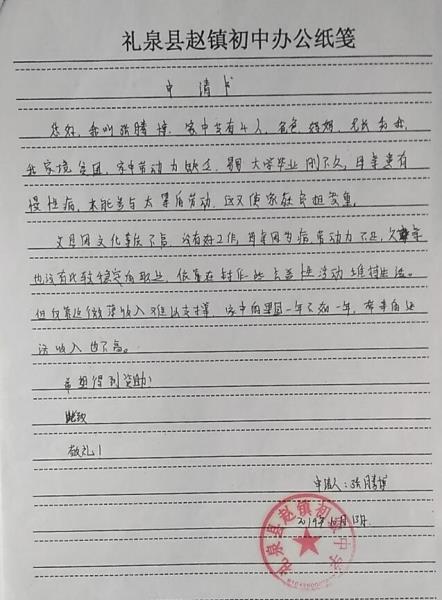 礼泉县赵镇初中办公纸笺
申请书
您好，我叫张腾博，家中共有4人，爸爸，妈妈，兄长和我，
我家境贫困，家中劳动力缺乏，哥哥大学毕业刚不久，母亲患有
慢性病，不能参与太累的劳动，这又使家庭负担加重。
父母因文化素质不高，没有好工作，母亲因为病劳动力不足，父亲
也没有比较稳定的职业，依靠在村作一些劳动维持生活。
但仅靠这微薄收入难以支撑，家中的果园一年不如一年，带来的
收入也不高。
希望得到资助！
此致
敬礼！
申请人：张腾博
2019年 月13日
礼泉县赵镇初级中学